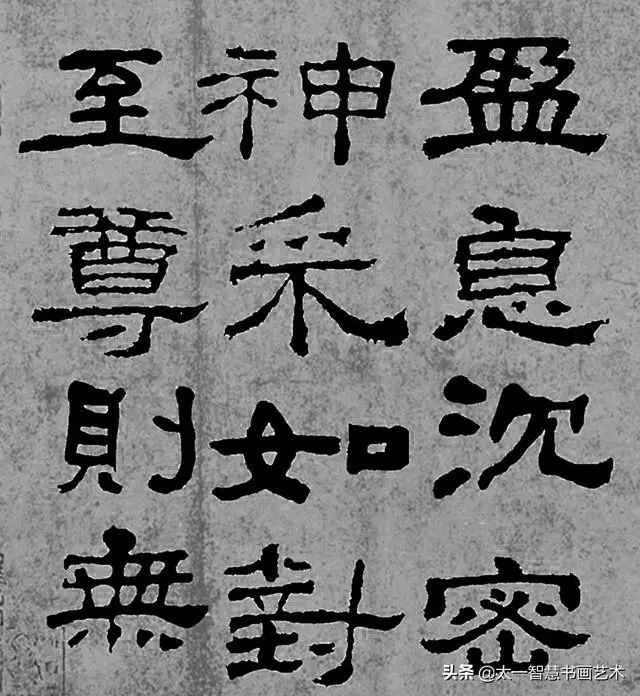 盈息沉密
神采如對
至尊則無
头条 @太一智慧书画艺术